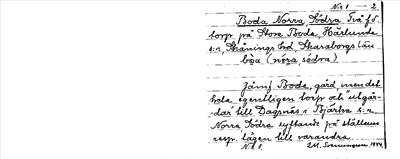 Nr 1 — 2
Boda Norra, Södra. Två f.d.
torp på Stora Boda, Härlunda
s:n, Skånings hd, Skaraborgs län
bòa (nòra, södra)
Jämf. Boda, gård, men det
hela egentligen torp och "utgår-
dar" till Dagsnäs i Bjärka s:n
Norra, Södra syftande på ställenas
resp. lägen till varandra.
Nr 1.